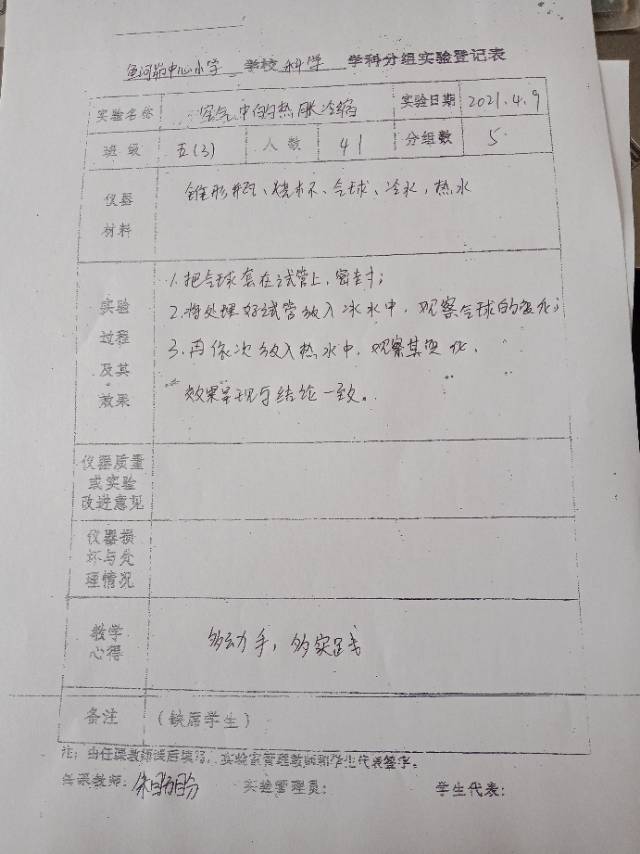 鱼河峁中心小学 学校 科学 学科分组实验登记表
实验名称 空气中的热胀冷缩 实验日期 2021.4.9
班级 五(3) 人数 41 分组数 5
仪器材料 锥形瓶、烧杯、气球、冷水,热水
实验过程及其效果
1.把气球套在试管上,密封;
2.将处理好试管放入冰水中,观察气球的变化;
3.再依次放入热水中,观察其变化.
效果呈现与结论一致。
仪器质量或实验改进意见
仪器损坏与处理情况
教学心得 多动手,多实践
备注 (缺席学生)
注:由任课教师课后填写,实验室管理教师和学生代表签字。
任课教师: 实验管理员: 学生代表: